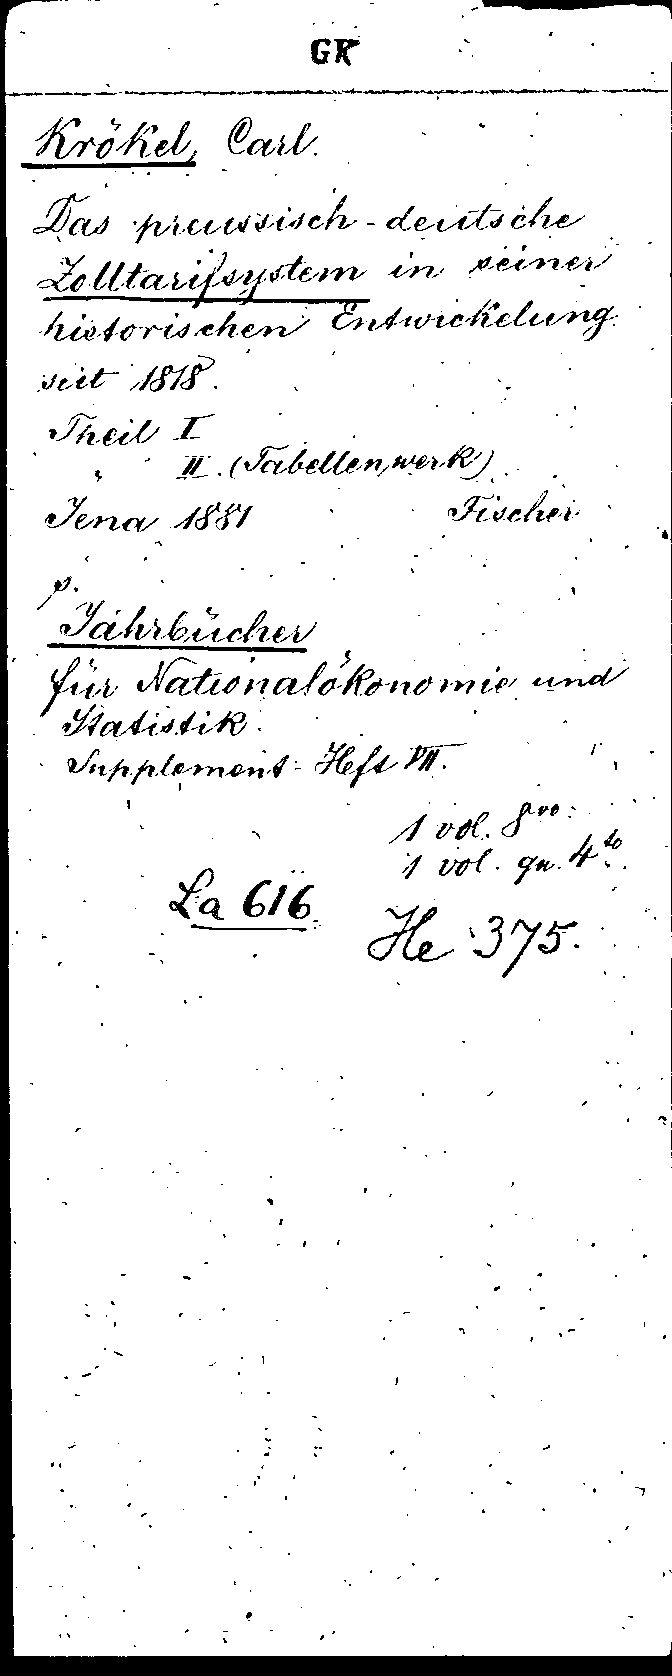 GK
Krökel, Carl.
Das preussisch-deutsche
Zolltarifsystem in seiner
historischen Entwickelung
seit 1818.
Theil I
" II. (Tabellenwerk)
Jena 1881 Fischer
p.
Jahrbücher
für Nationalökonomie und
Statistik.
Supplement-Heft VII.
1 vol. 8vo.
1 vol. qu. 4to.
La 616.
He 375.